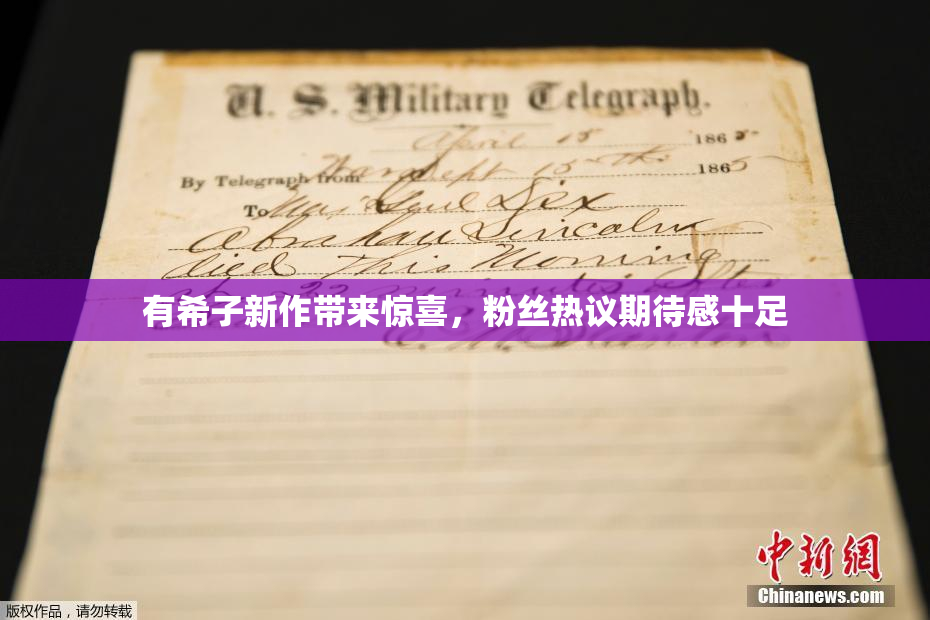 U. S. Military Telegraph.
April 15 1865
By Telegraph from War Dept 15th 1865
To Maj Genl Dix
Abraham Lincoln
died This Morning
at 22 minutes after
有希子新作带来惊喜，粉丝热议期待感十足
E. M. Stanton
中新网
Chinanews.com
版权作品，请勿转载